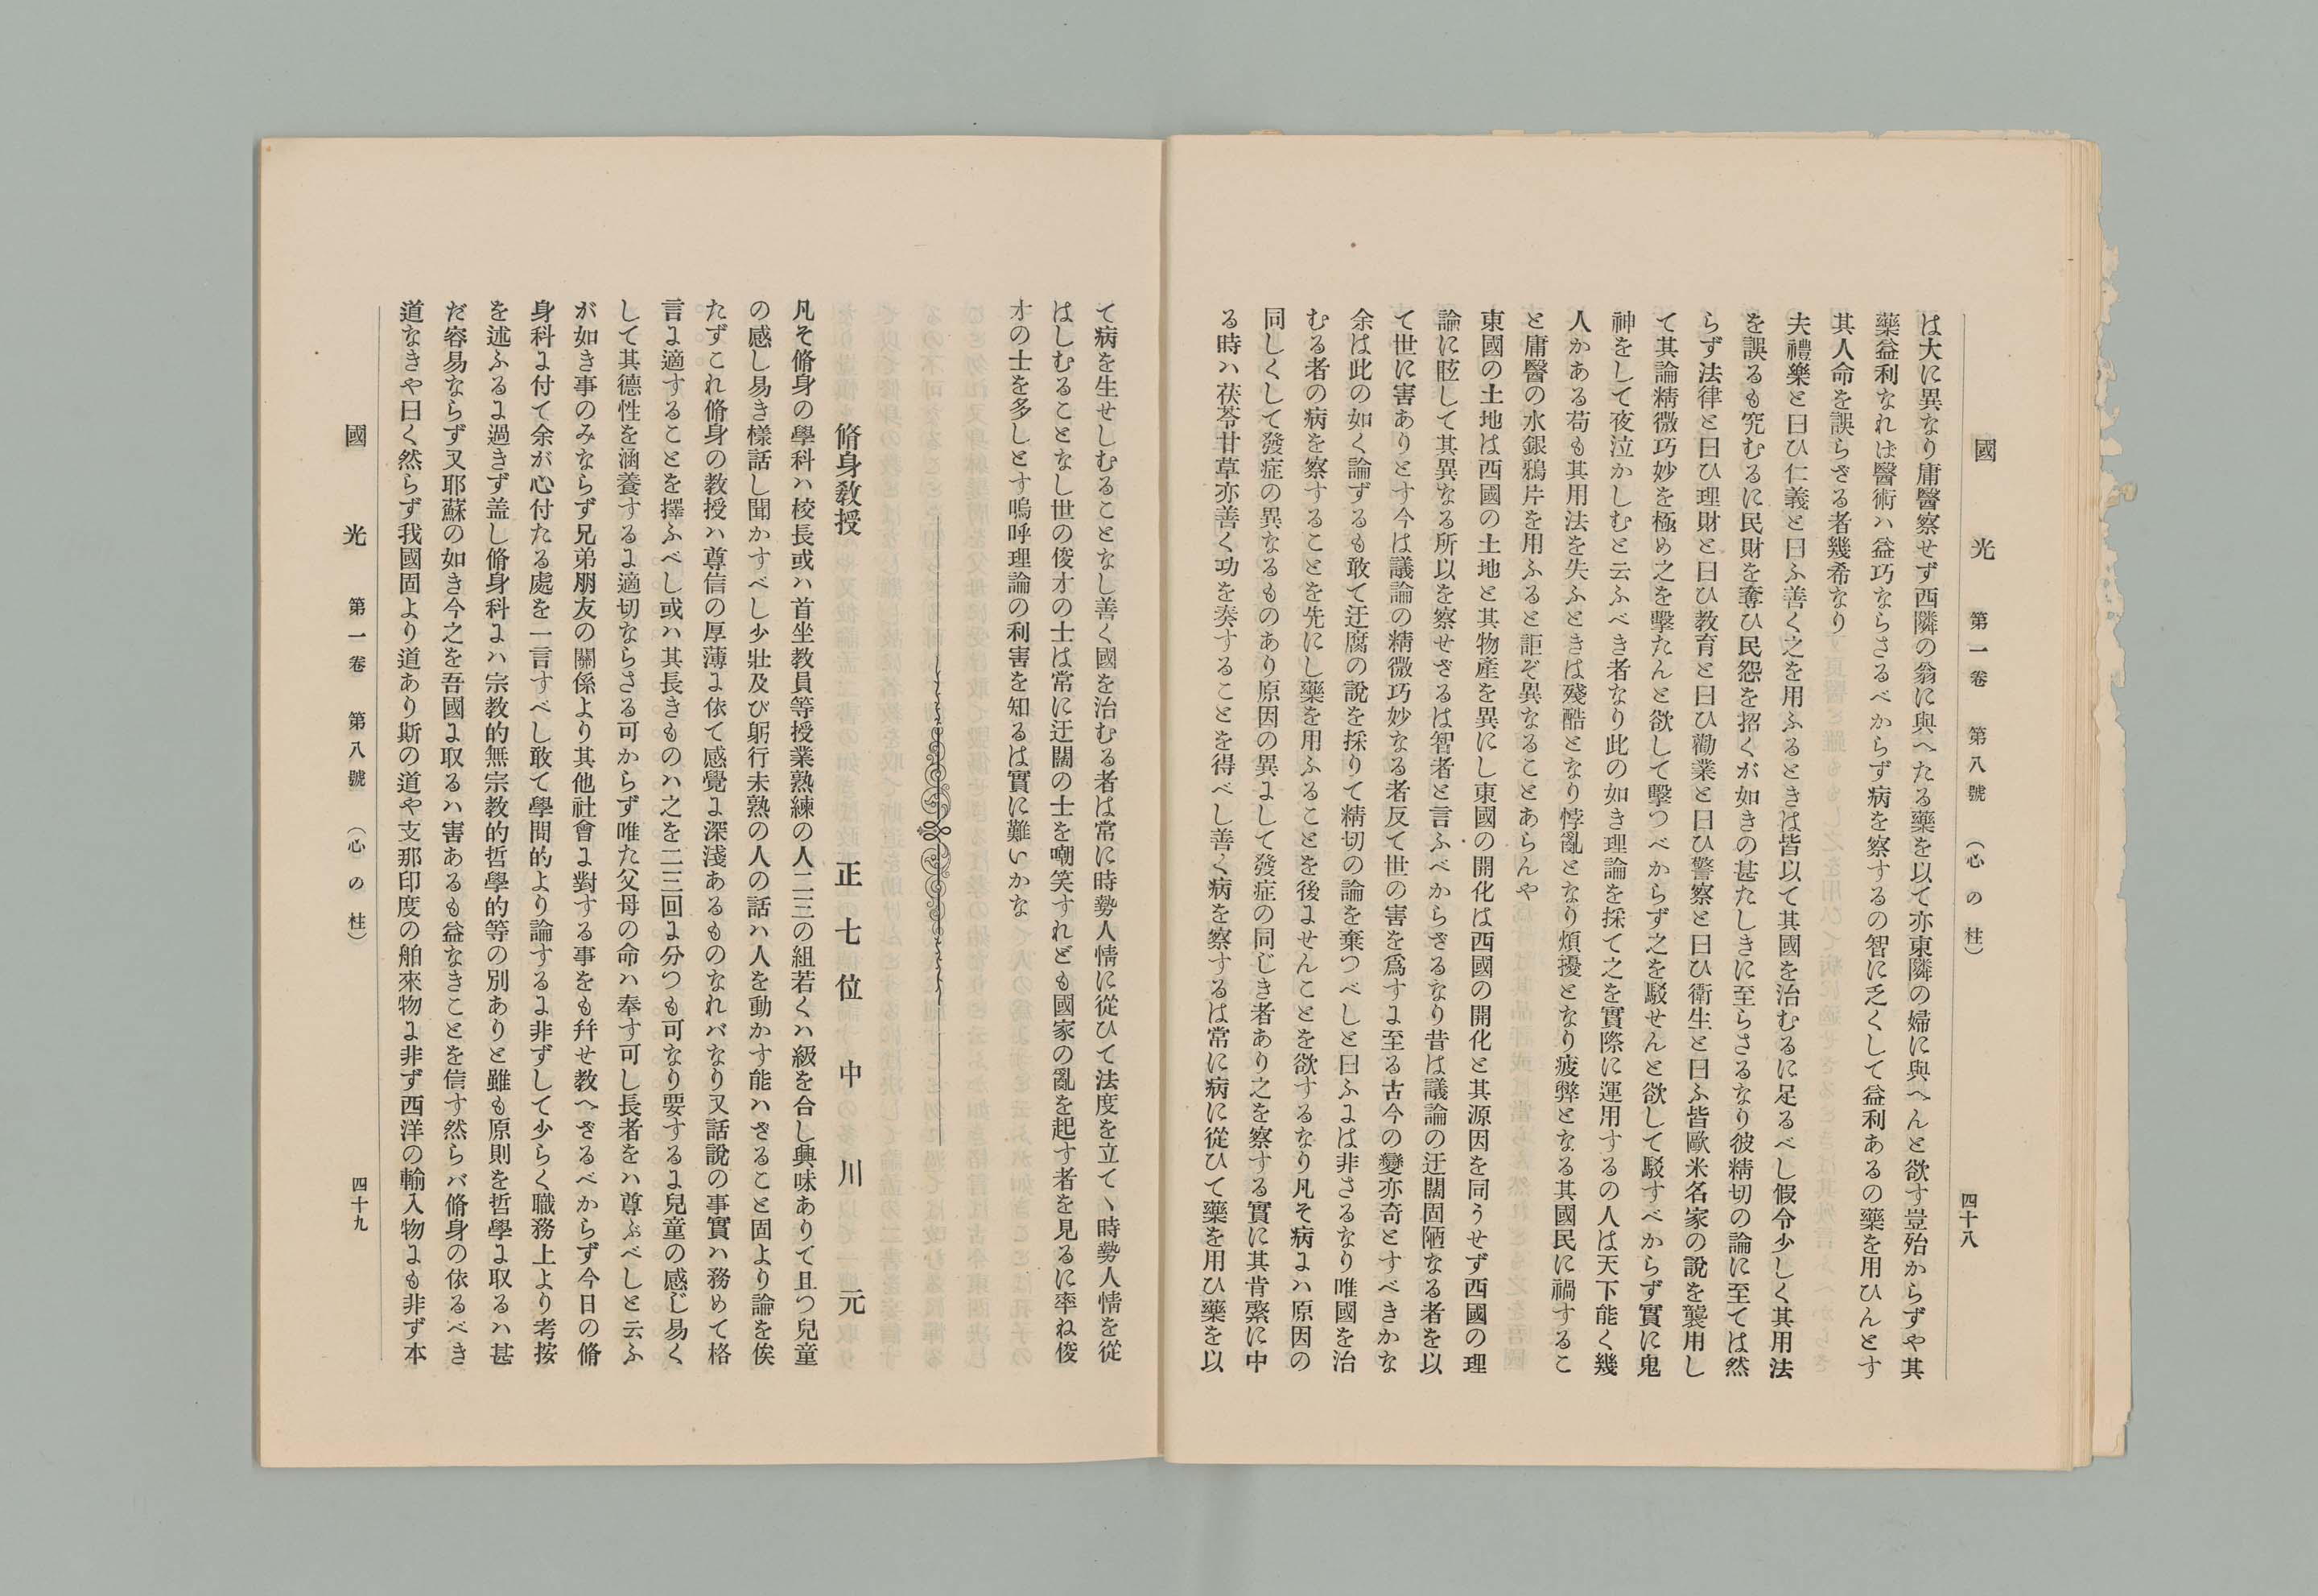 國光 第一卷 第八號 （心の柱） 四十八
は大に異なり庸醫察せず西隣の翁に與へたる藥を以て亦東隣の婦に與へんと欲す豈殆からずや其
藥益利なれは醫術ハ益巧ならさるべからず病を察するの智に乏くして益利あるの藥を用ひんとす
其人命を誤らざる者幾希なり
夫禮樂と曰ひ仁義と曰ふ善く之を用ふるときは皆以て其國を治むるに足るべし假令少しく其用法
を誤るも究むるに民財を奪ひ民怨を招くが如きの甚たしきに至らさるなり彼精切の論に至ては然
らず法律と曰ひ理財と曰ひ教育と曰ひ勸業と曰ひ警察と曰ひ衛生と曰ふ皆歐米名家の說を襲用し
て其論精微巧妙を極め之を擊たんと欲して擊つべからず之を駁せんと欲して駁すべからず實に鬼
神をして夜泣かしむと云ふべき者なり此の如き理論を採て之を實際に運用するの人は天下能く幾
人かある苟も其用法を失ふときは殘酷となり悖亂となり煩擾となり疲弊となる其國民に禍するこ
と庸醫の水銀鴉片を用ふると詎ぞ異なることあらんや
東國の土地は西國の土地と其物產を異にし東國の開化は西國の開化と其源因を同うせず西國の理
論に眩して其異なる所以を察せざるは智者と言ふべからざるなり昔は議論の迂闊固陋なる者を以
て世に害ありとす今は議論の精微巧妙なる者反て世の害を爲すよ至る古今の變亦奇とすべきかな
余は此の如く論ずるも敢て迂腐の說を採りて精切の論を棄つべしと曰ふよは非さるなり唯國を治
むる者の病を察することを先にし藥を用ふることを後よせんことを欲するなり凡そ病よハ原因の
同しくして發症の異なるものあり原因の異よして發症の同じき者あり之を察する實に其肯綮に中
る時ハ茯苓甘草亦善く功を奏することを得べし善く病を察するは常に病に從ひて藥を用ひ藥を以
て病を生せしむることなし善く國を治むる者は常に時勢人情に從ひて法度を立てヽ時勢人情を從
はしむることなし世の俊才の士は常に迂闊の士を嘲笑すれども國家の亂を起す者を見るに率ね俊
才の士を多しとす嗚呼理論の利害を知るは實に難いかな
脩身教授
正七位 中川元
凡そ脩身の學科ハ校長或ハ首坐教員等授業熟練の人二三の組若くハ級を合し興味ありて且つ兒童
の感し易き樣話し聞かすべし少壯及び躬行未熟の人の話ハ人を動かす能ハざること固より論を俟
たずこれ脩身の教授ハ尊信の厚薄よ依て感覺よ深淺あるものなれバなり又話說の事實ハ務めて格
言よ適することを擇ふべし或ハ其長きものハ之を二三回よ分つも可なり要するよ兒童の感じ易く
して其德性を涵養するよ適切ならさる可からず唯た父母の命ハ奉す可し長者をハ尊ぶべしと云ふ
が如き事のみならず兄弟朋友の關係より其他社會よ對する事をも幷せ教へざるべからず今日の脩
身科よ付て余が心付たる處を一言すべし敢て學問的より論するよ非ずして少らく職務上より考按
を述ふるよ過きず盖し脩身科よハ宗教的無宗教的哲學的等の別ありと雖も原則を哲學よ取るハ甚
だ容易ならず又耶蘇の如き今之を吾國よ取るハ害あるも益なきことを信す然らバ脩身の依るべき
道なきや曰く然らず我國固より道あり斯の道や支那印度の舶來物よ非ず西洋の輸入物よも非ず本
國光 第一卷 第八號 （心の柱） 四十九